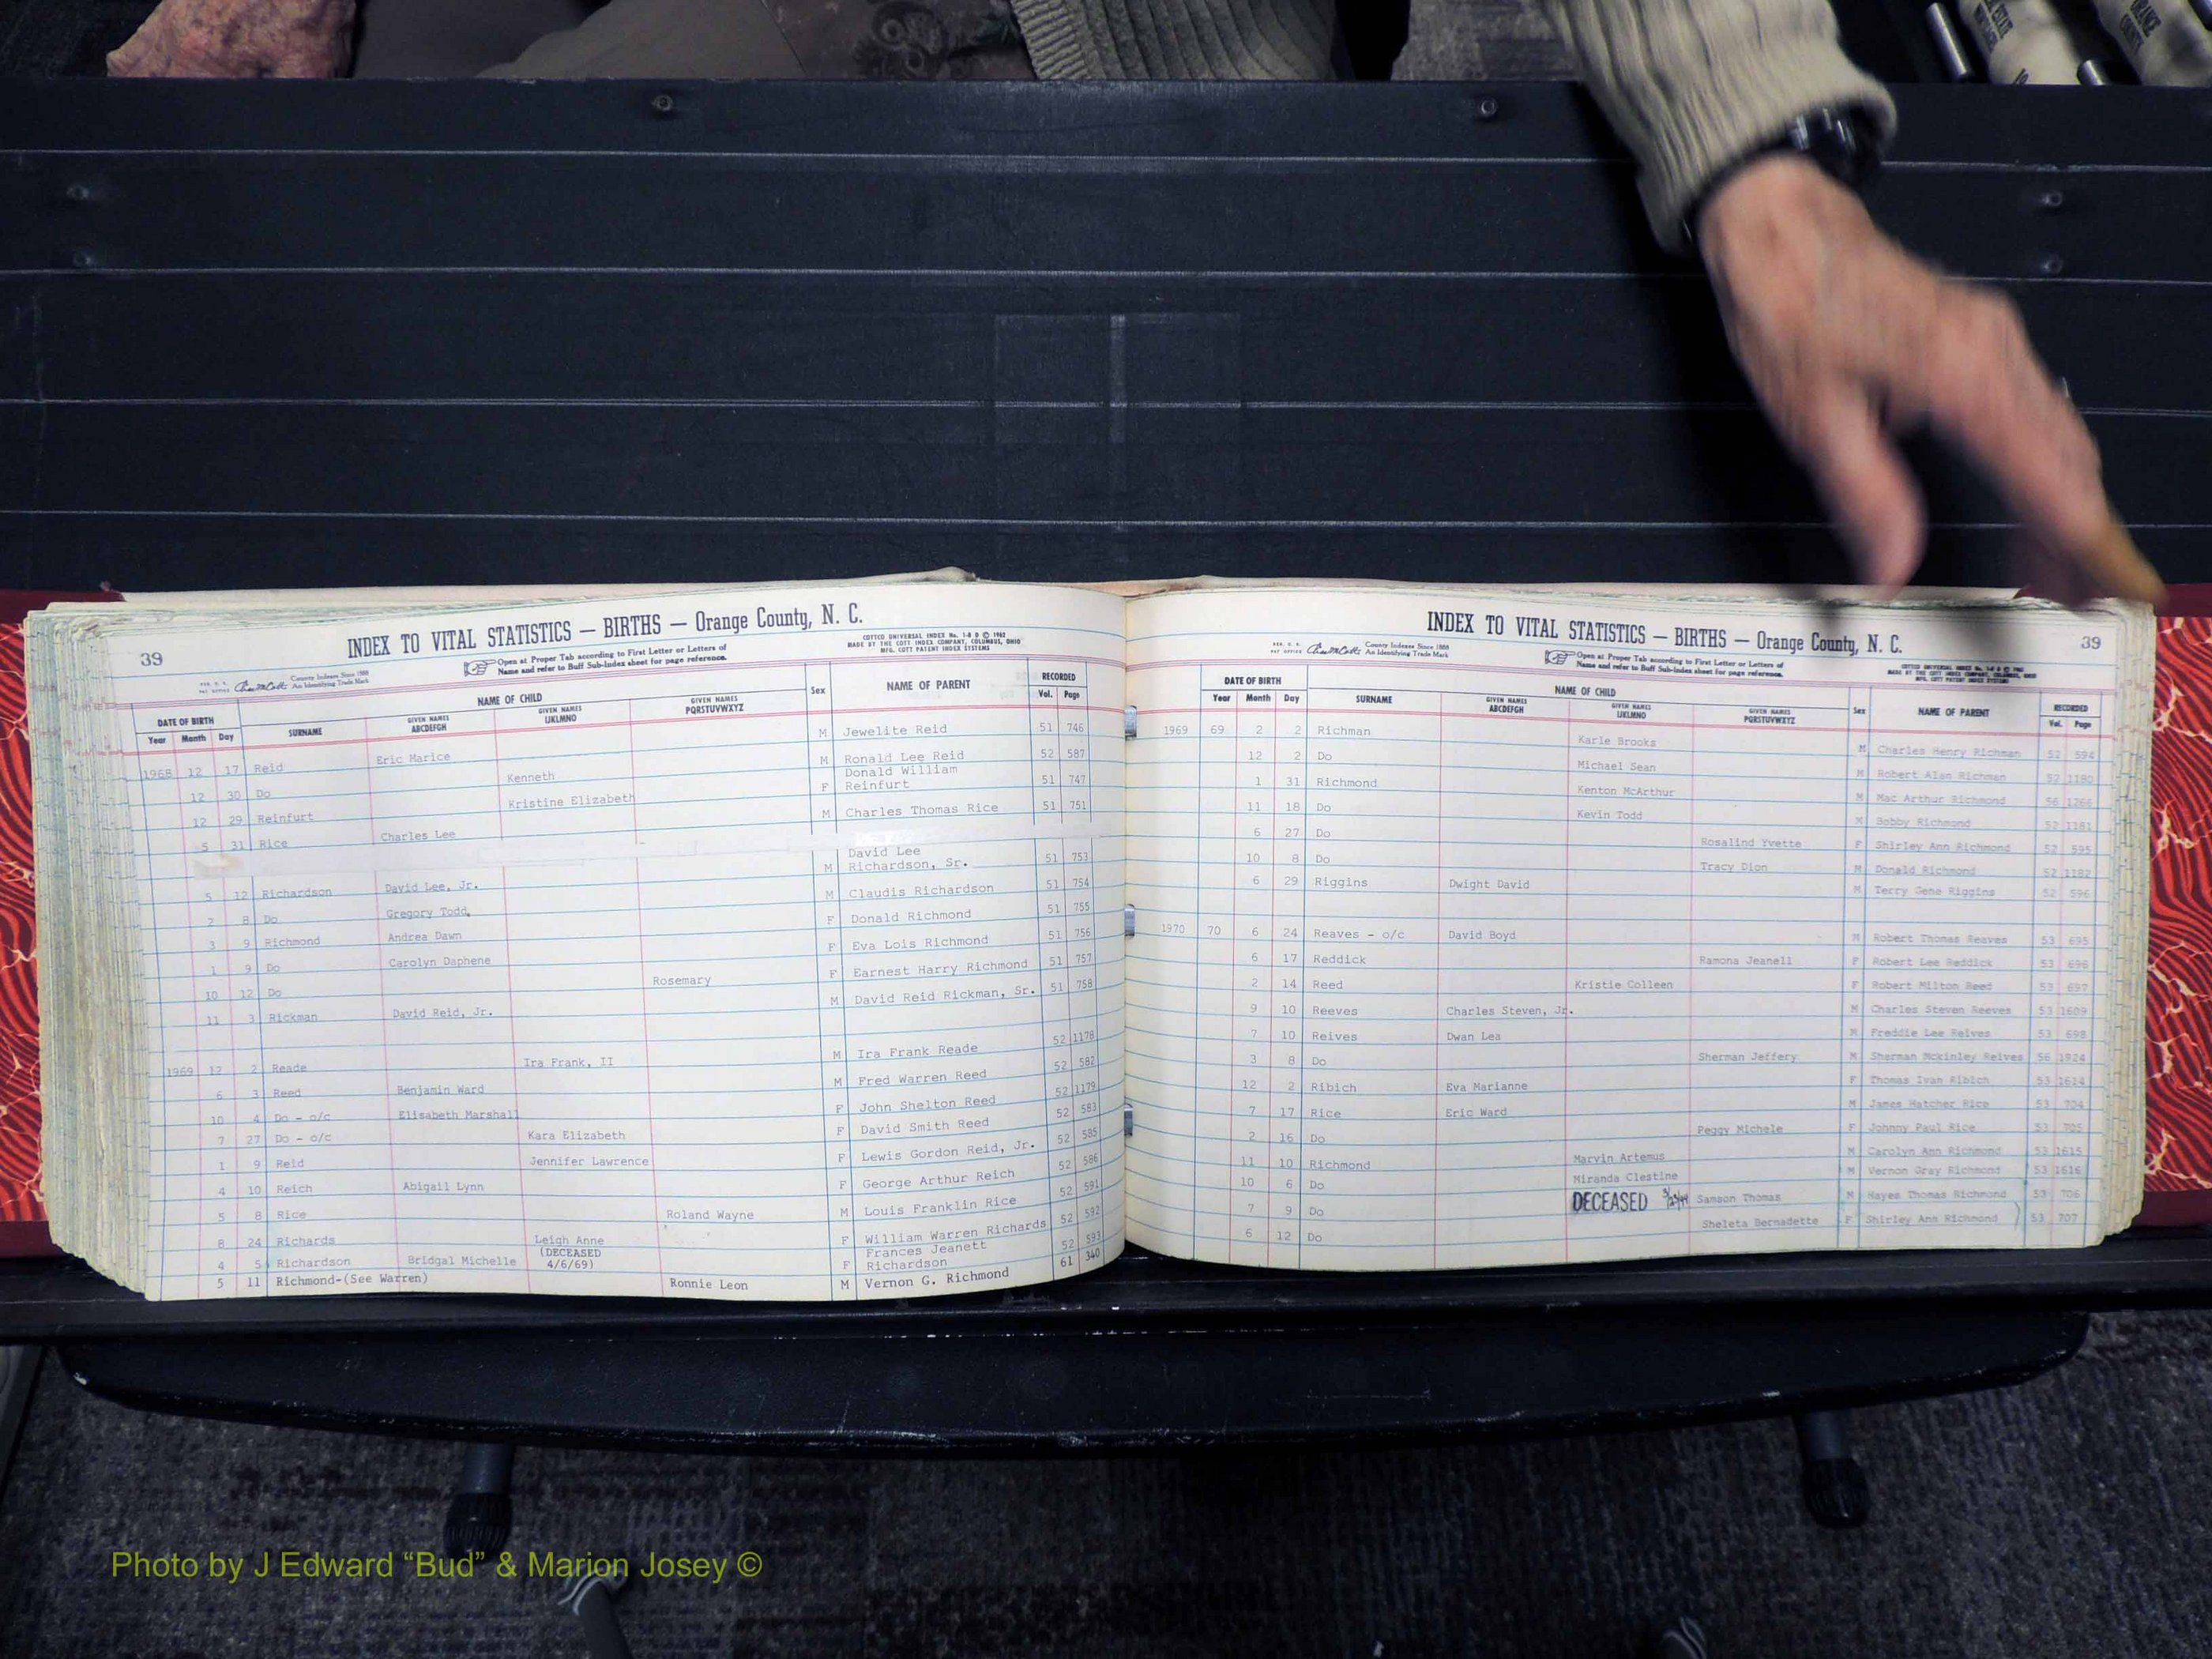 39
INDEX TO VITAL STATISTICS — BIRTHS — Orange County, N. C.
County Indexes Since 1888
An Identifying Trade Mark
Open at Proper Tab according to First Letter or Letters of
Name and refer to Buff Sub-Index sheet for page reference.
COTTCO UNIVERSAL INDEX No. 1-8 D © 1962
MADE BY THE COTT INDEX COMPANY, COLUMBUS, OHIO
MFG. COTT PATENT INDEX SYSTEMS
DATE OF BIRTH NAME OF CHILD Sex NAME OF PARENT RECORDED
Year Month Day SURNAME GIVEN NAMES ABCDEFGH GIVEN NAMES IJKLMNO GIVEN NAMES PQRSTUVWXYZ Vol. Page
1968 12 17 Reid Eric Marice M Jewelite Reid 51 746
12 30 Do Kenneth M Ronald Lee Reid 52 587
12 29 Reinfurt Kristine Elizabeth F Donald William Reinfurt 51 747
5 31 Rice Charles Lee M Charles Thomas Rice 51 751
5 12 Richardson David Lee, Jr. M David Lee Richardson, Sr. 51 753
2 8 Do Gregory Todd M Claudis Richardson 51 754
3 9 Richmond Andrea Dawn F Donald Richmond 51 755
1 9 Do Carolyn Daphene F Eva Lois Richmond 51 756
10 12 Do Rosemary F Earnest Harry Richmond 51 757
11 3 Rickman David Reid, Jr. M David Reid Rickman, Sr. 51 758
1969 12 2 Reade Ira Frank, II M Ira Frank Reade 52 1178
6 3 Reed Benjamin Ward M Fred Warren Reed 52 582
10 4 Do - o/c Elisabeth Marshall F John Shelton Reed 52 1179
7 27 Do - o/c Kara Elizabeth F David Smith Reed 52 583
1 9 Reid Jennifer Lawrence F Lewis Gordon Reid, Jr. 52 585
4 10 Reich Abigail Lynn F George Arthur Reich 52 586
5 8 Rice Roland Wayne M Louis Franklin Rice 52 591
8 24 Richards Leigh Anne F William Warren Richards 52 592
4 5 Richardson Bridgal Michelle (DECEASED 4/6/69) F Frances Jeanett Richardson 52 593
5 11 Richmond-(See Warren) Ronnie Leon M Vernon G. Richmond 61 340
INDEX TO VITAL STATISTICS — BIRTHS — Orange County, N. C.
39
County Indexes Since 1888
An Identifying Trade Mark
Open at Proper Tab according to First Letter or Letters of
Name and refer to Buff Sub-Index sheet for page reference.
DATE OF BIRTH NAME OF CHILD Sex NAME OF PARENT RECORDED
Year Month Day SURNAME GIVEN NAMES ABCDEFGH GIVEN NAMES IJKLMNO GIVEN NAMES PQRSTUVWXYZ Vol. Page
1969 69 2 2 Richman Karle Brooks M Charles Henry Richman 52 594
12 2 Do Michael Sean M Robert Alan Richman 52 1180
1 31 Richmond Kenton McArthur M Mac Arthur Richmond 56 1266
11 18 Do Kevin Todd M Bobby Richmond 52 1181
6 27 Do Rosalind Yvette F Shirley Ann Richmond 52 595
10 8 Do Tracy Dion M Donald Richmond 52 1182
6 29 Riggins Dwight David M Terry Gene Riggins 52 596
1970 70 6 24 Reaves - o/c David Boyd M Robert Thomas Reaves 53 695
6 17 Reddick Ramona Jeanell F Robert Lee Reddick 53 696
2 14 Reed Kristie Colleen F Robert Milton Reed 53 697
9 10 Reeves Charles Steven, Jr. M Charles Steven Reeves 53 1609
7 10 Reives Dwan Lea M Freddie Lee Reives 53 698
3 8 Do Sherman Jeffery M Sherman Mckinley Reives 56 1924
12 2 Ribich Eva Marianne F Thomas Ivan Ribich 53 1614
7 17 Rice Eric Ward M James Hatcher Rice 53 704
2 16 Do Peggy Michele F Johnny Paul Rice 53 705
11 10 Richmond Marvin Artemus M Carolyn Ann Richmond 53 1615
10 6 Do Miranda Clestine M Vernon Gray Richmond 53 1616
7 9 Do DECEASED Samson Thomas M Hayes Thomas Richmond 53 706
6 12 Do Sheleta Bernadette F Shirley Ann Richmond 53 707
Photo by J Edward “Bud” & Marion Josey ©